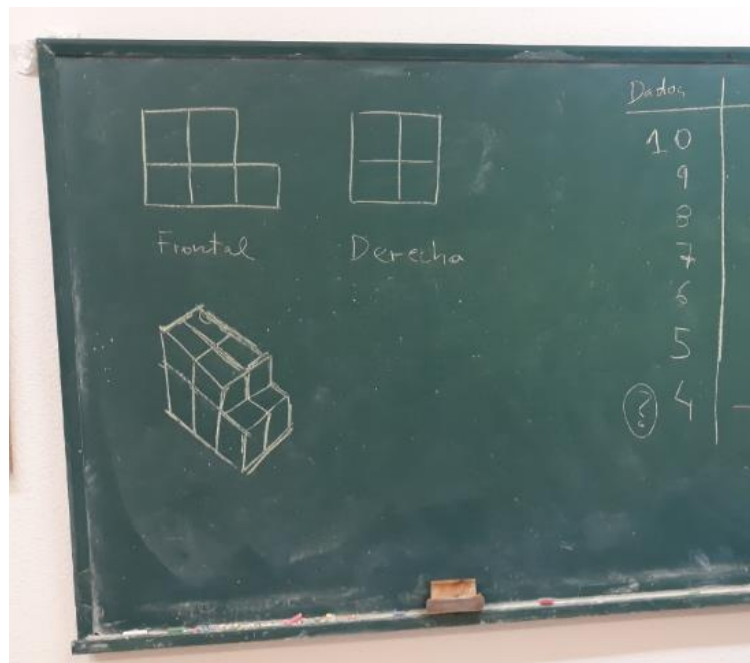 Frontal
Derecha
Dados
10
9
8
7
6
5
? 4